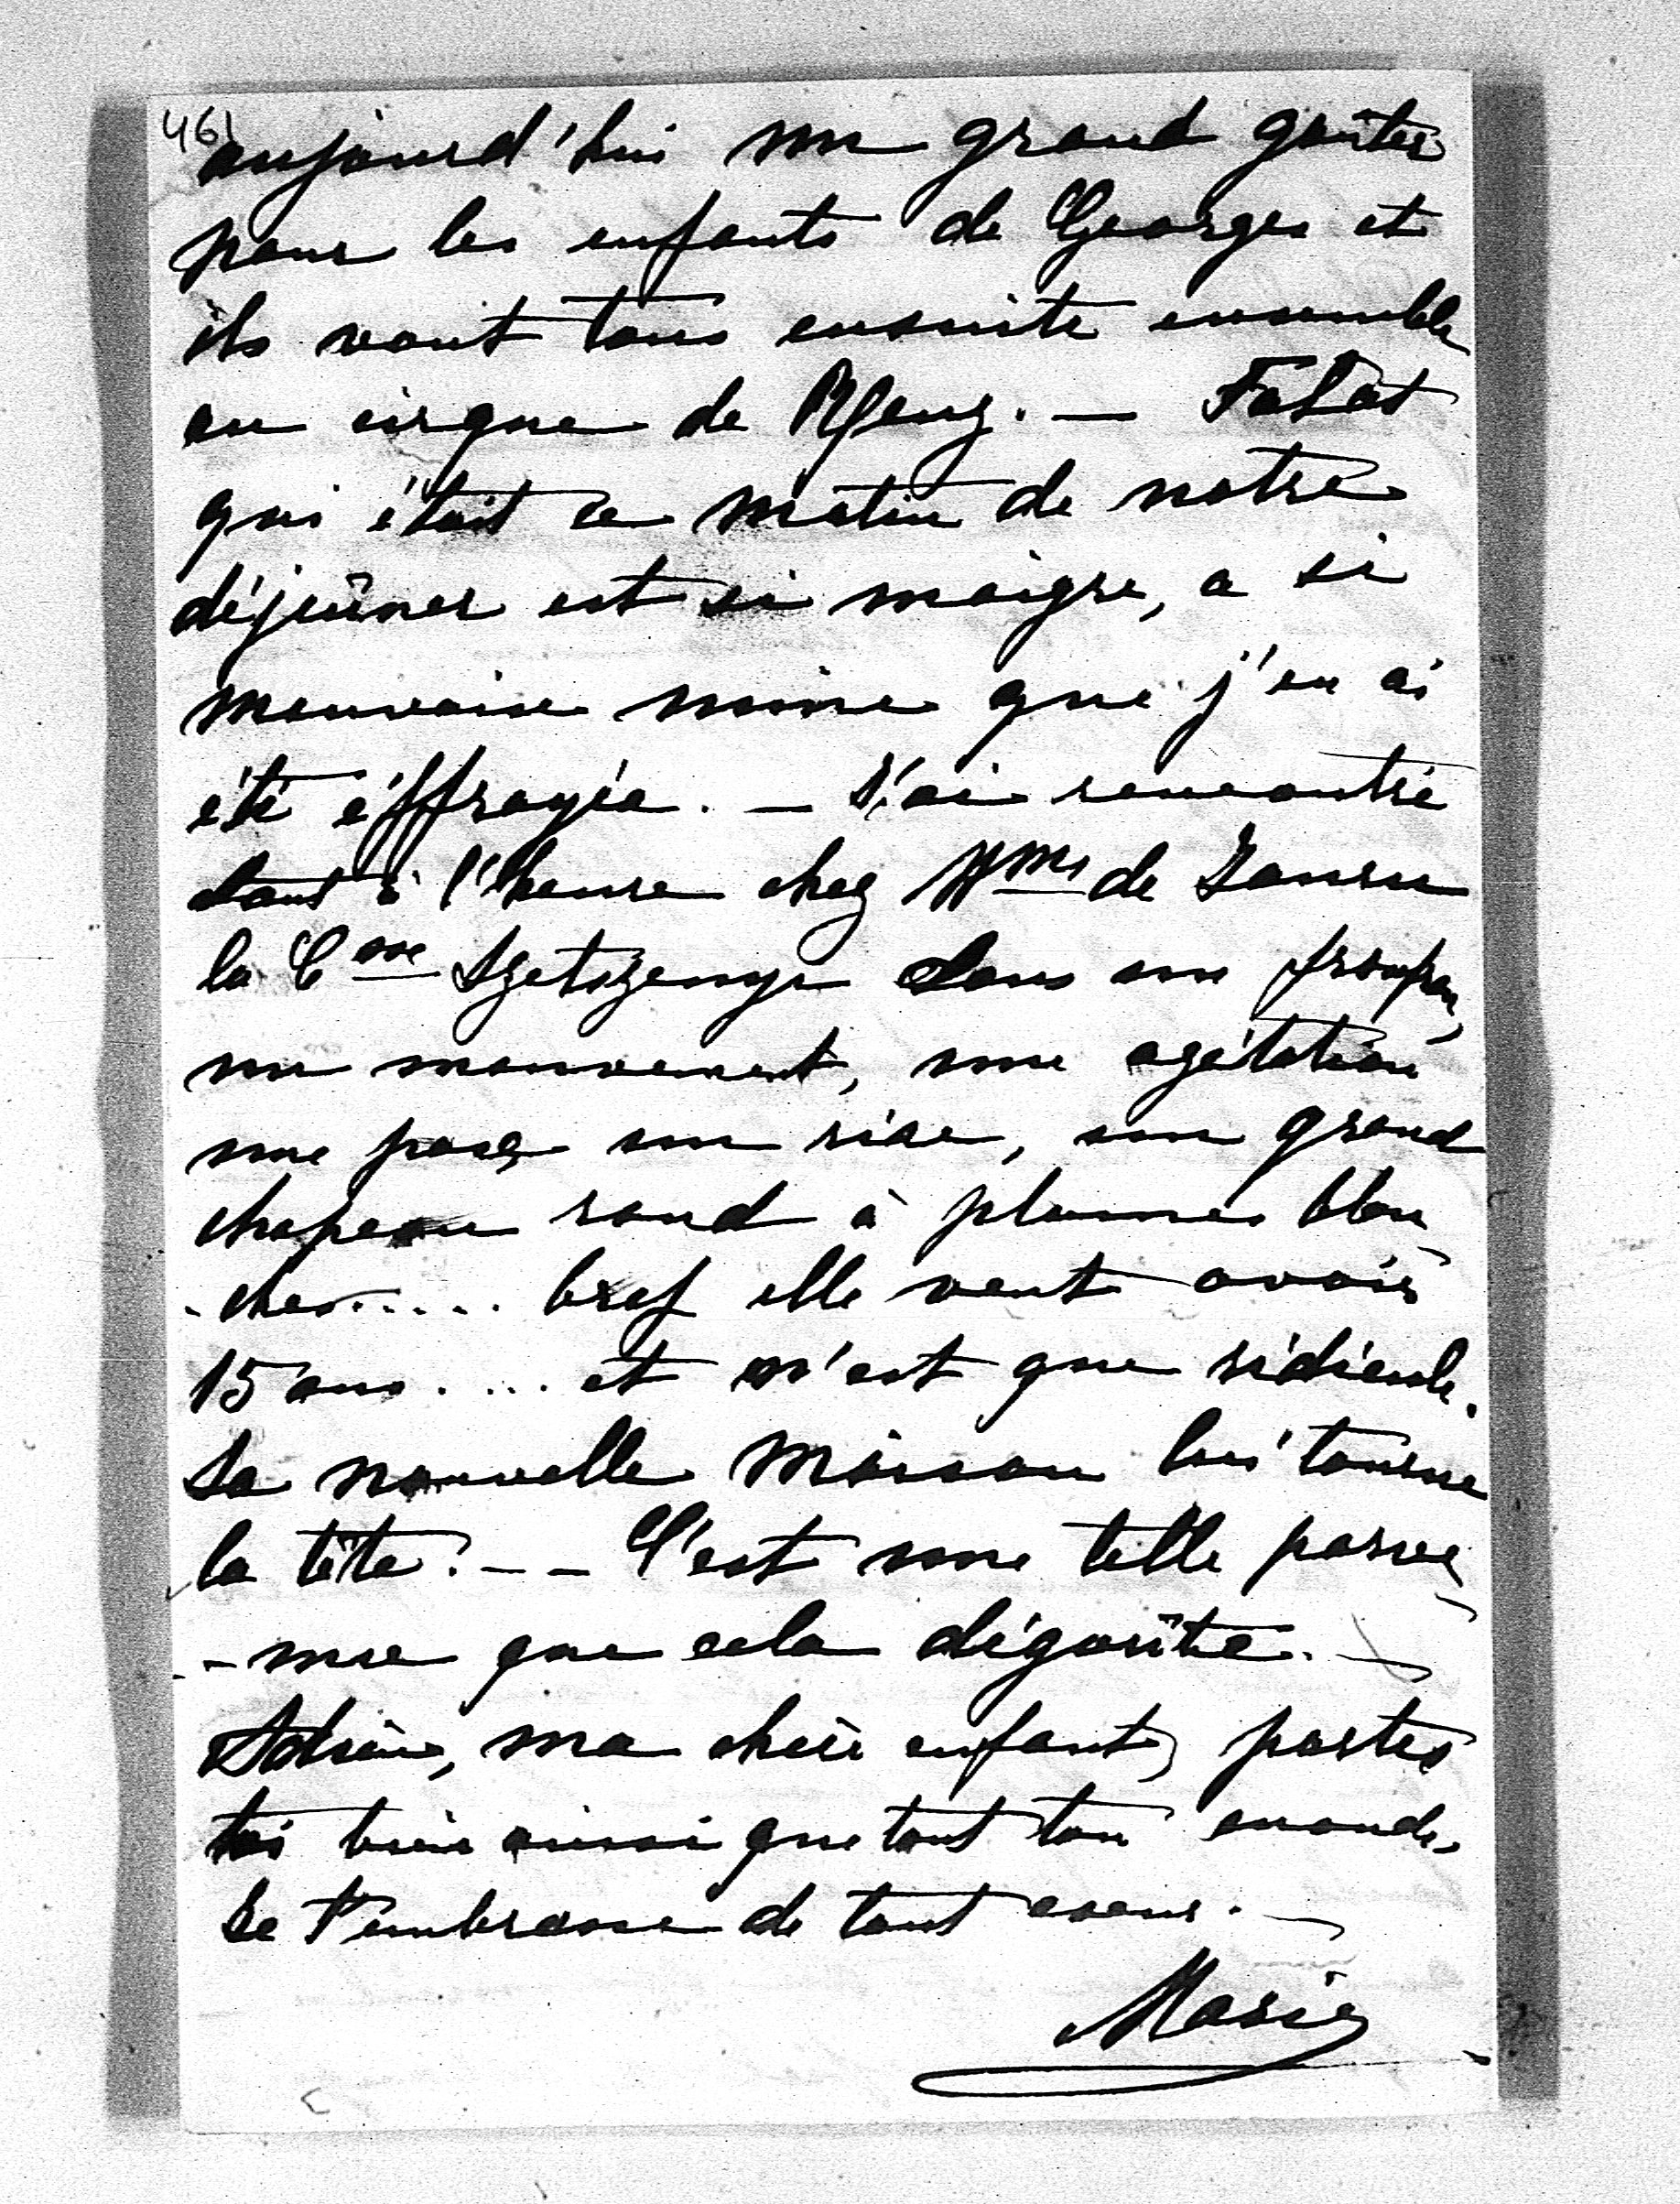 461
aujourd'hui un grand goûter
pour les enfants de Georges et
ils vont tous ensuite ensemble
au cirque de Renz. — Falat
qui était ce matin de notre
déjeûner est si maigre, a si
mauvaise mine que j'en ai
été éffrayée. — J'ai rencontré
tout à l'heure chez Mme de
la Csse dans une
un mouvement, une agitation
une pose, un rire, un grand
chapeau rond à plumes blan
- ches..... bref elle veut avoir
15 ans.... et n'est que ridicule.
Sa nouvelle maison lui tourne
la tête. - - C'est une telle parve
- nue que cela dégoûte. —
Adieu, ma chère enfant, portes
toi bien ainsi que tout ton monde.
Je t'embrasse de tout coeur. —
Marie